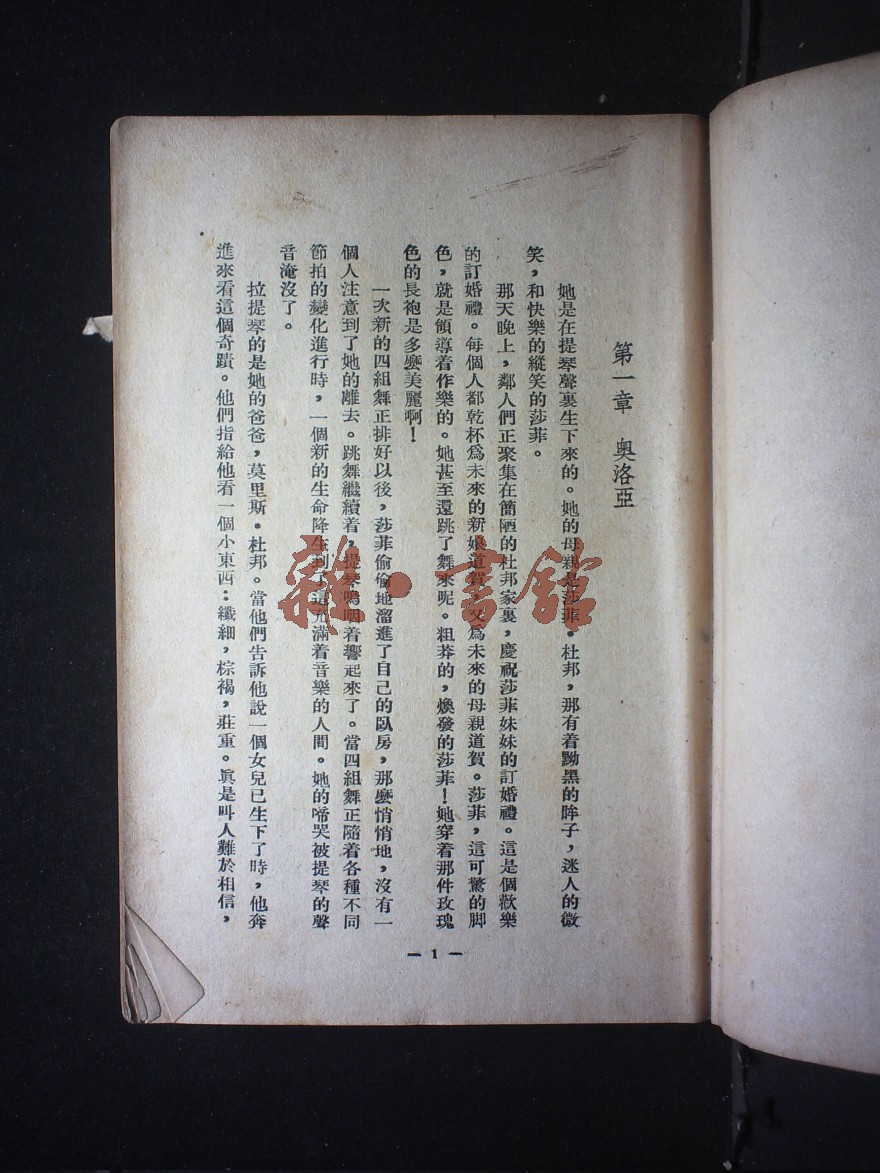 第一章　奧洛亞
她是在提琴聲裏生下來的。她的母親是莎菲·杜邦，那有着黝黑的眸子，迷人的微
笑，和快樂的縱笑的莎菲。
那天晚上，鄰人們正聚集在簡陋的杜邦家裏，慶祝莎菲妹妹的訂婚禮。這是個歡樂
的訂婚禮。每個人都乾杯爲未來的新娘道賀，又爲未來的母親道賀。莎菲，這可驚的脚
色，就是領導着作樂的。她甚至還跳了舞來呢。粗莽的，煥發的莎菲！她穿着那件玫瑰
色的長袍是多麽美麗啊！
一次新的四組舞正排好以後，莎菲偷偷地溜進了自己的臥房，那麽悄悄地，沒有一
個人注意到了她的離去。跳舞繼續着，提琴嗚咽着響起來了。當四組舞正隨着各種不同
節拍的變化進行時，一個新的生命降生到了這充滿着音樂的人間。她的啼哭被提琴的聲
音淹沒了。
拉提琴的是她的爸爸，莫里斯·杜邦。當他們告訴他說一個女兒已生下了時，他奔
進來看這個奇蹟。他們指給他看一個小東西：纖細，棕褐，莊重。眞是叫人難於相信，
— 1 —
雜·書館